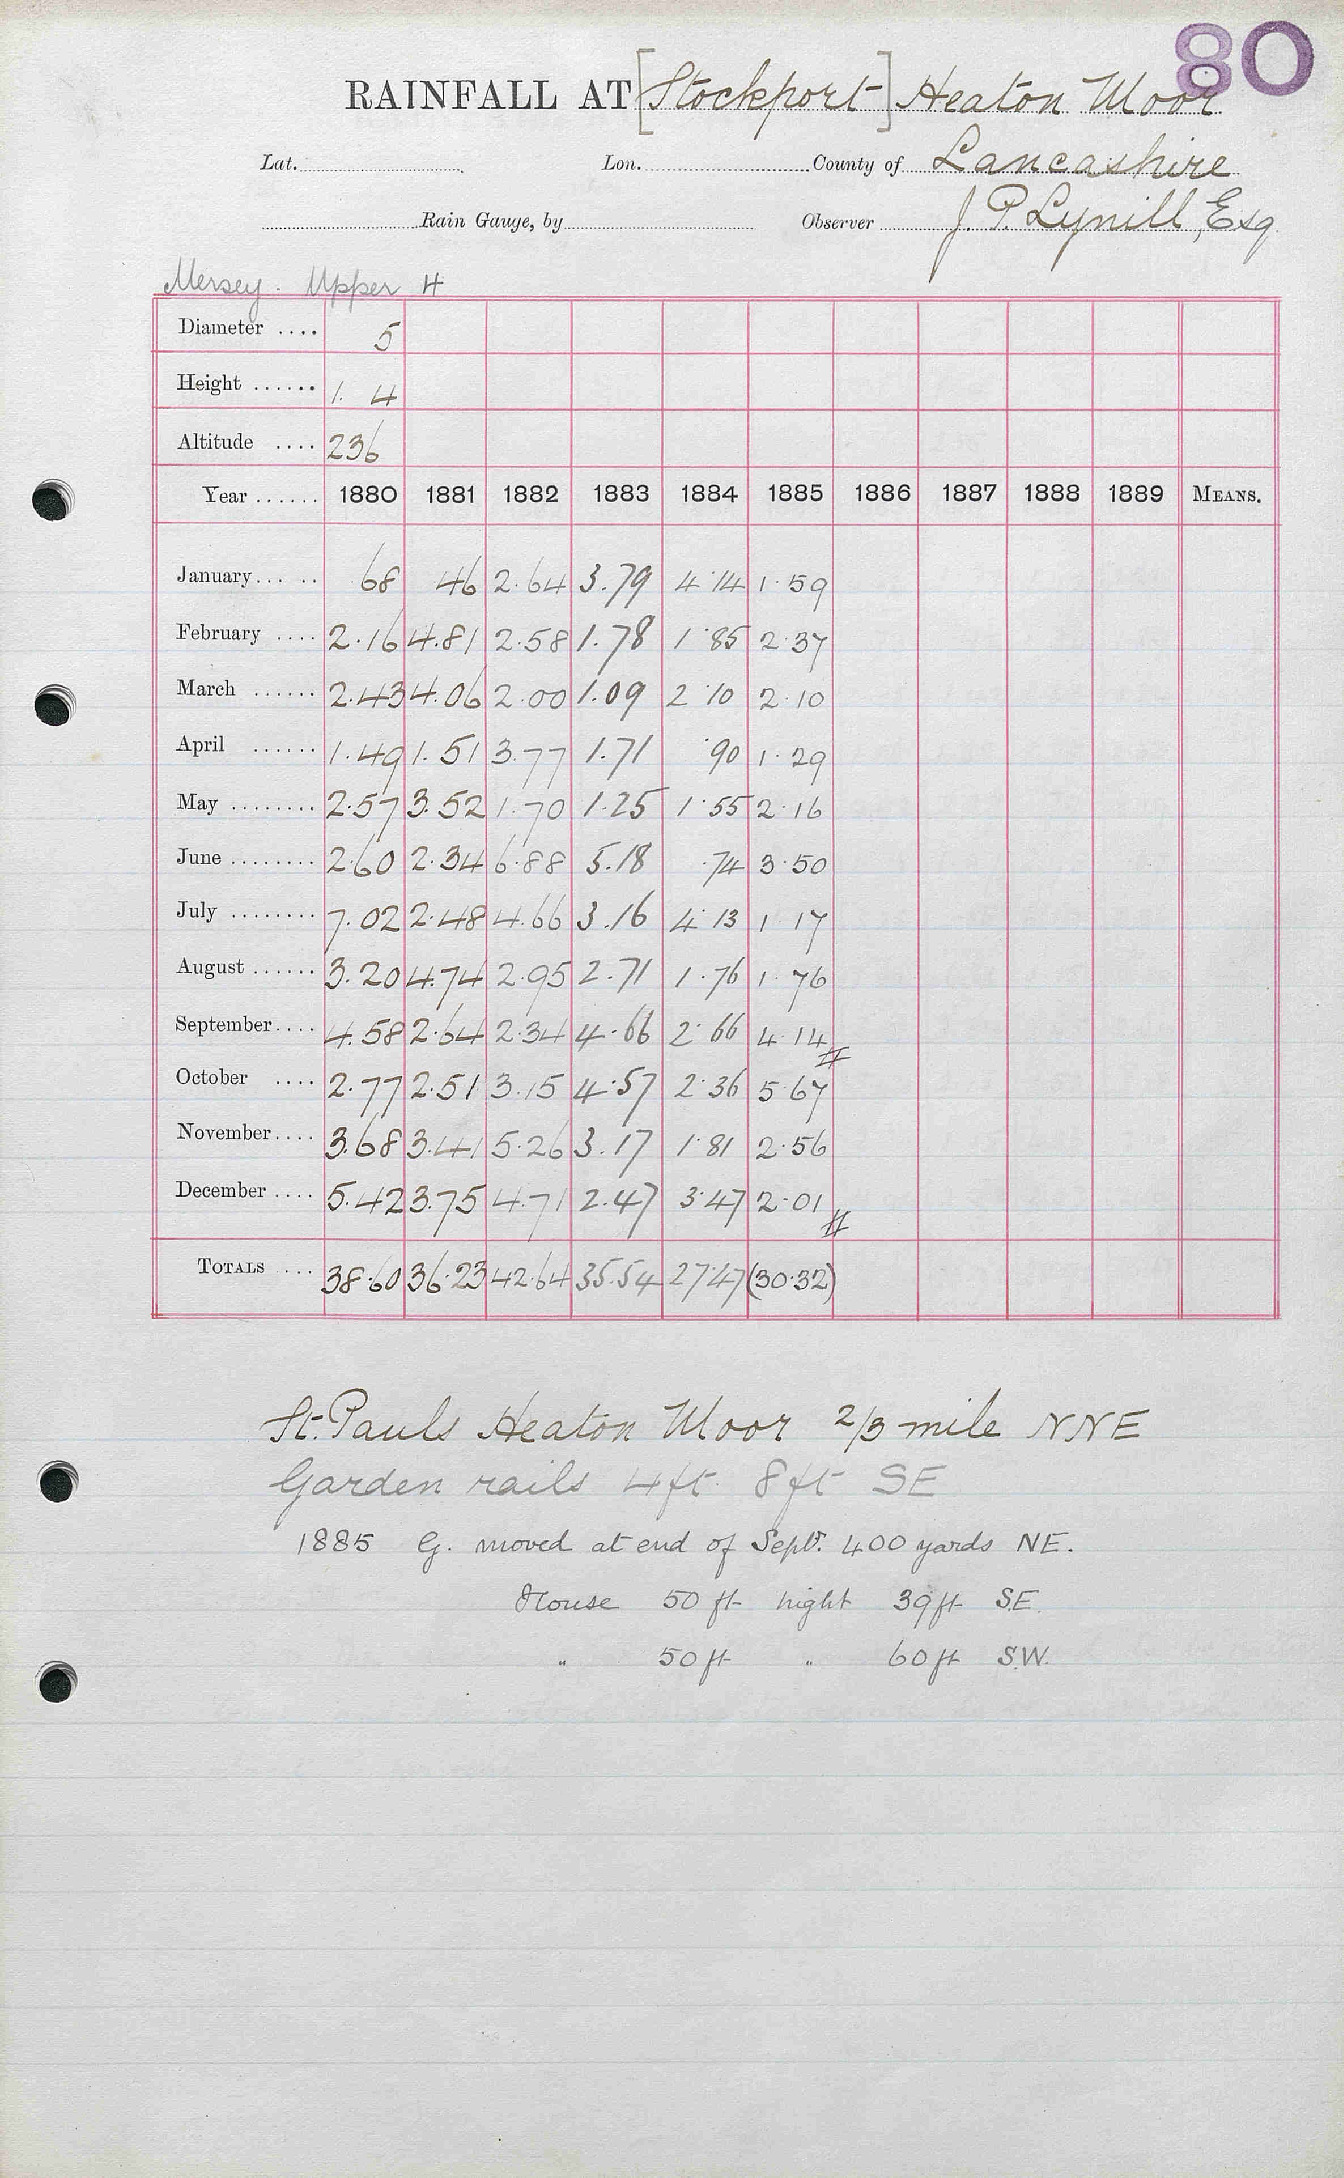 80
RAINFALL AT [Stockport] Heaton Moor
Lat. Lon. County of Lancashire
Rain Gauge, by Observer J. P. Lynill, Esq
Mersey. Upper H
Diameter .... 5
Height ...... 1. 4
Altitude .... 236
Year ...... 1880 1881 1882 1883 1884 1885 1886 1887 1888 1889 MEANS.
January... .. 68 46 2.64 3.79 4.14 1.59
February .... 2.16 4.81 2.58 1.78 1.85 2.37
March ...... 2.43 4.06 2.00 1.09 2.10 2.10
April ...... 1.49 1.51 3.77 1.71 .90 1.29
May ........ 2.57 3.52 1.70 1.25 1.55 2.16
June ........ 2.60 2.34 6.88 5.18 .74 3.50
July ........ 7.02 2.48 4.66 3.16 4.13 1.17
August ...... 3.20 4.74 2.95 2.71 1.76 1.76
September.... 4.58 2.64 2.34 4.66 2.66 4.14
October .... 2.77 2.51 3.15 4.57 2.36 5.67
November.... 3.68 3.41 5.26 3.17 1.81 2.56
December .... 5.42 3.75 4.71 2.47 3.47 2.01
TOTALS ... 38.60 36.23 42.64 35.54 27.47 (30.32)
St. Pauls Heaton Moor 2/3 mile NNE
Garden rails 4ft. 8ft SE
1885 G. moved at end of Septr. 400 yards NE.
House 50 ft hight 39ft S.E.
" 50 ft " 60 ft S.W.